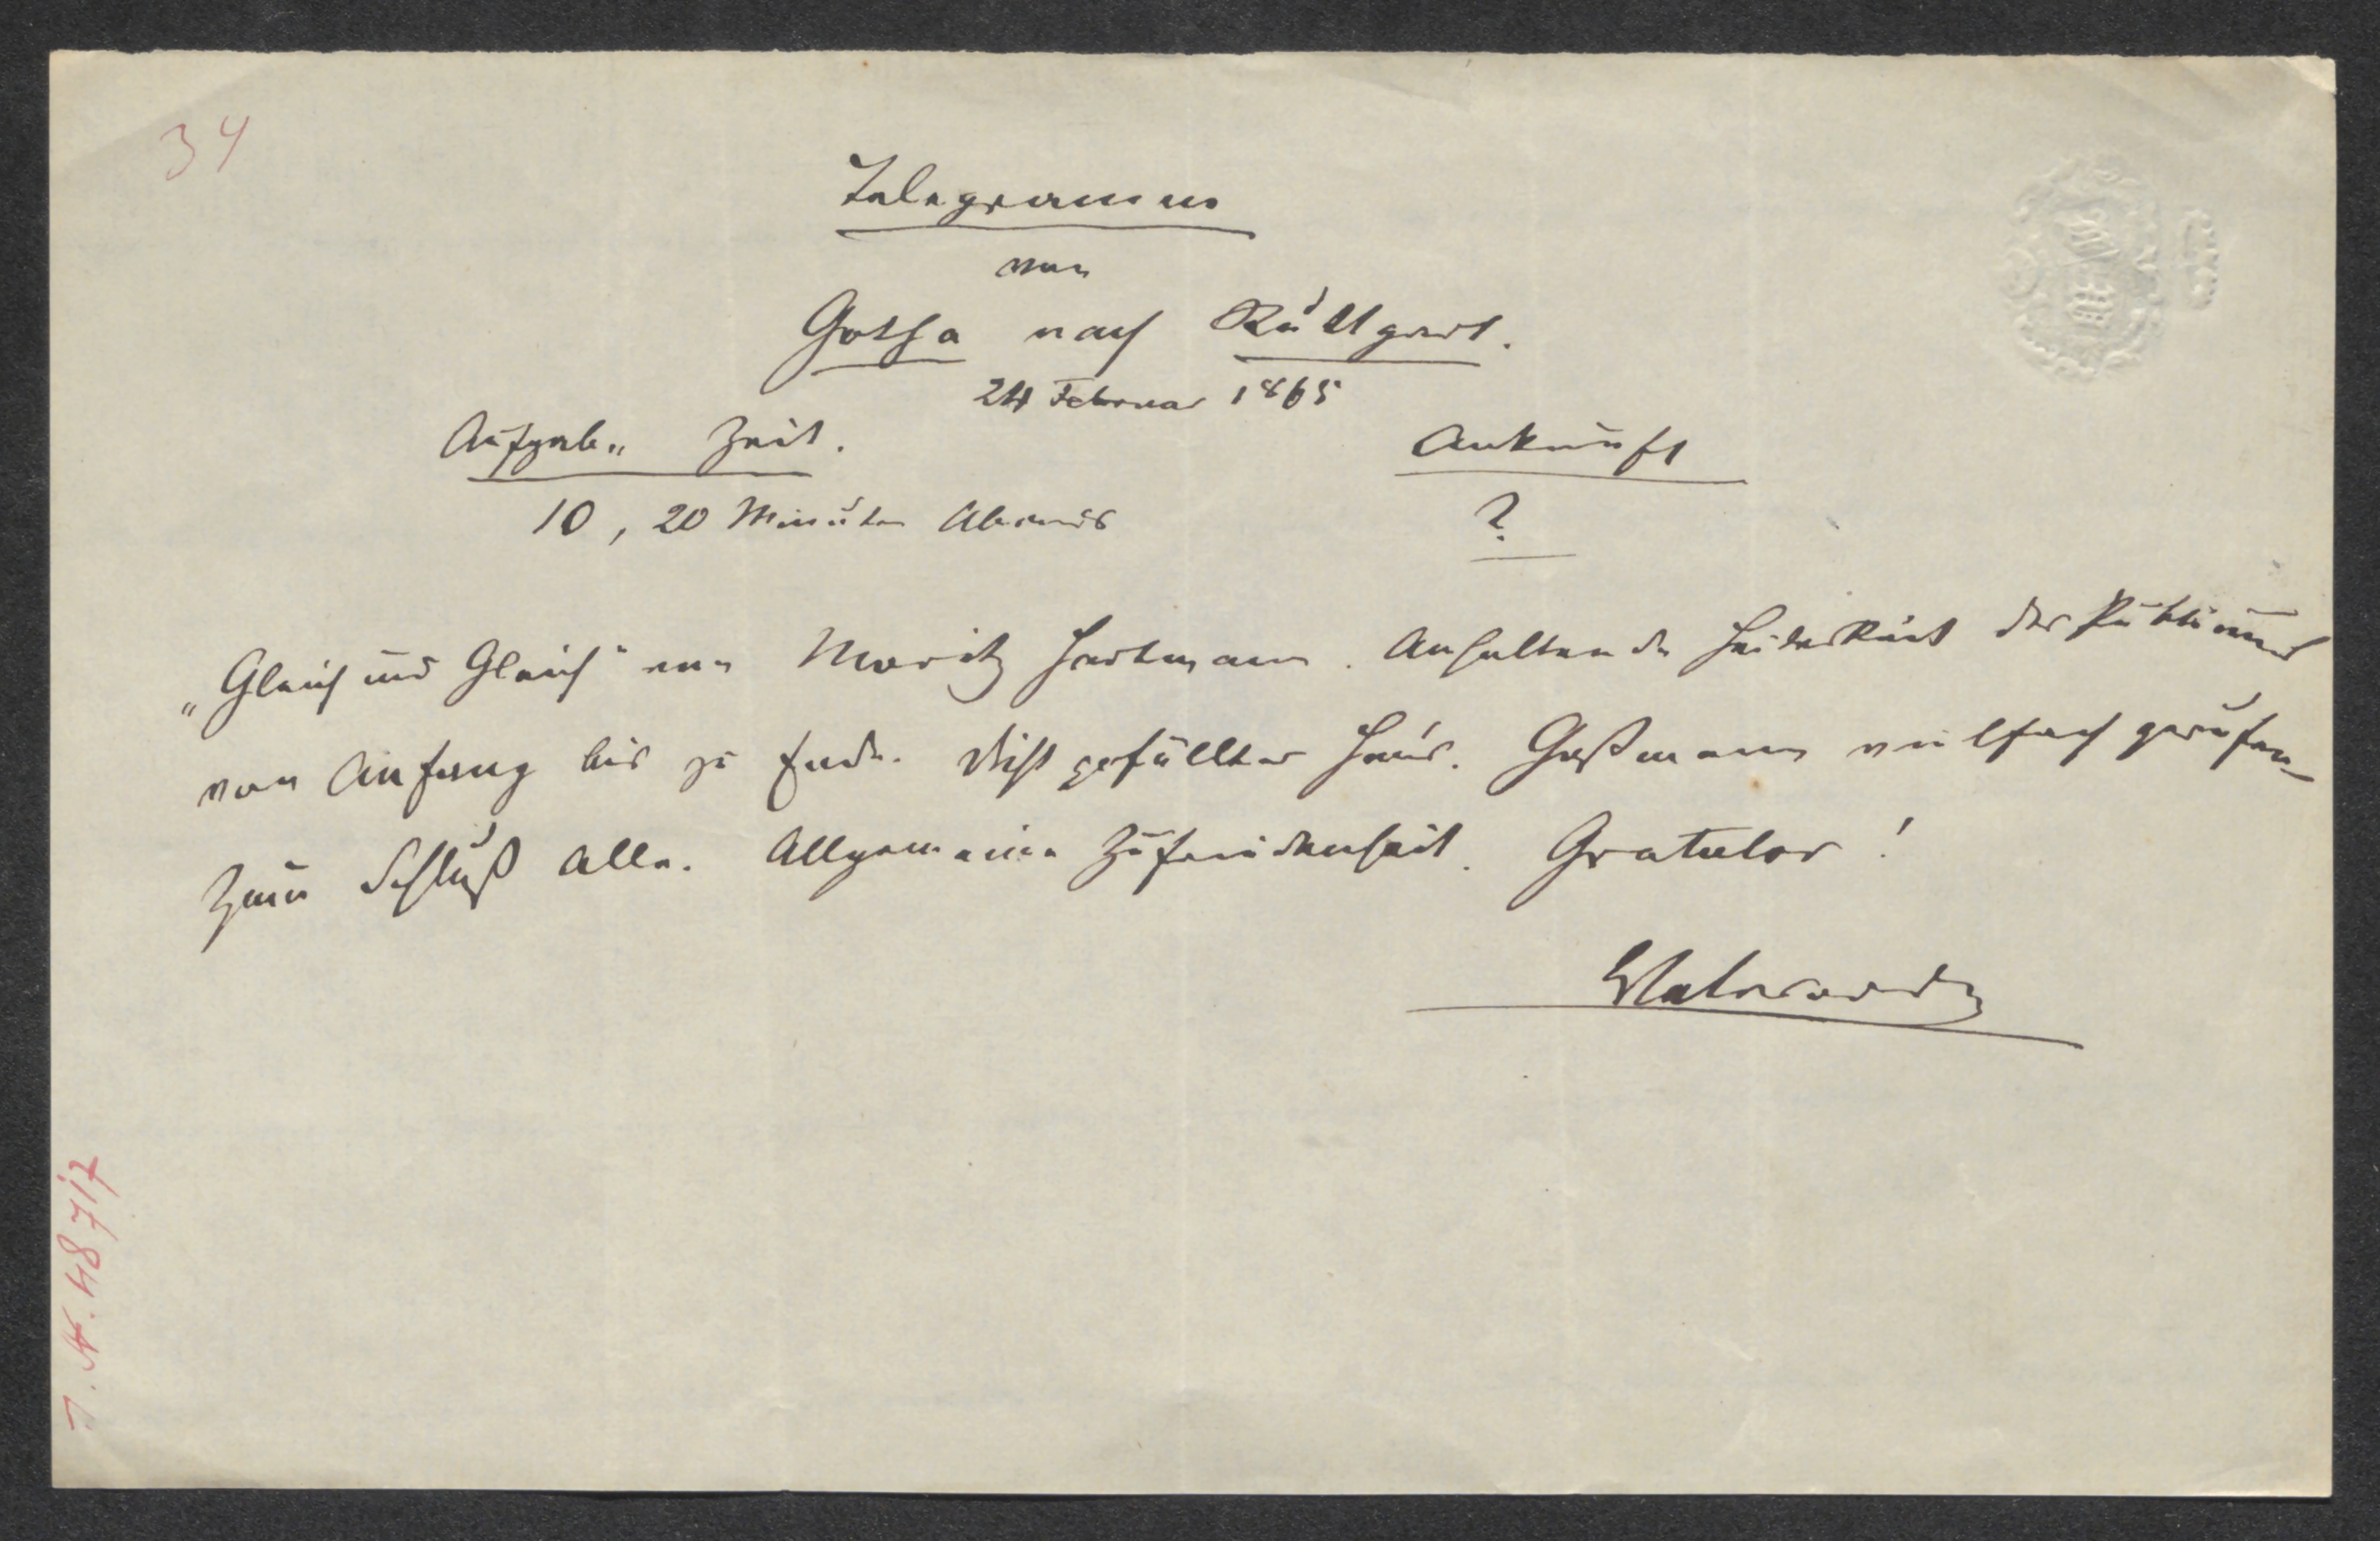 34
Telegramm
von
Gotha nach Stuttgart.
24 Februar 1865
Aufgabe Zeit. Ankunft
10, 20 Minuten Abends ?
„Gleich und Gleich“ von Moritz Hartmann. Anhaltende Heiterkeit des Publikums
von Anfang bis zu Ende. Dicht gefülltes Haus. Gaßmann vielfach gerufen
zum Schluß Alle. Allgemeine Zufriedenheit. Gratulor!
J. N. 48717